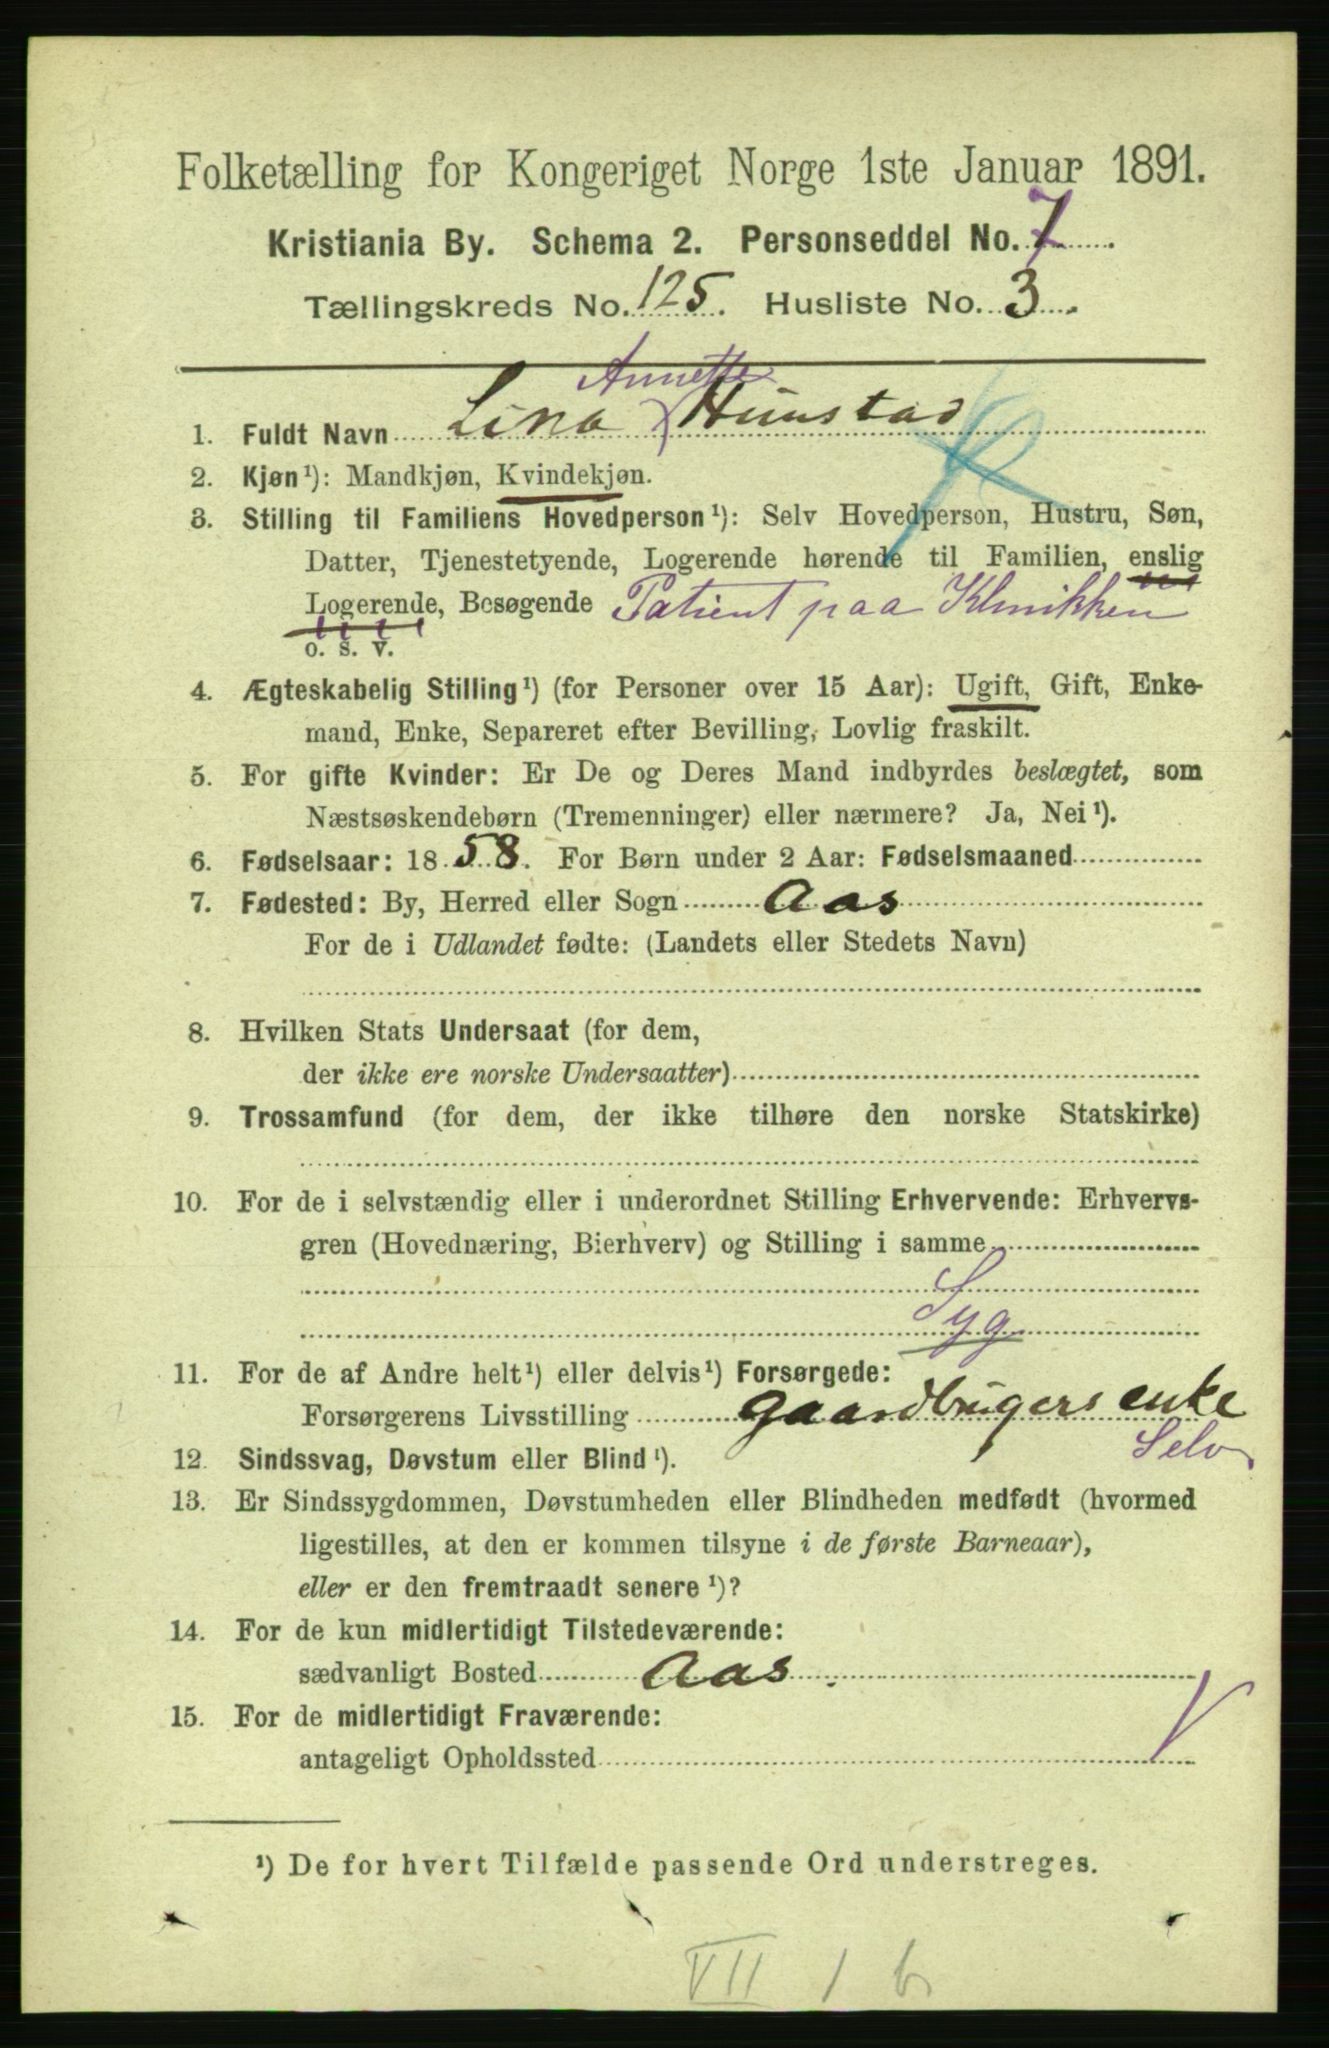 Folketælling for Kongeriget Norge 1ste Januar 1891.
Kristiania By. Schema 2. Personseddel No. 7.
Tællingskreds No. 125. Husliste No. 3.
Annette
1. Fuldt Navn Lina Hunstad
2. Kjøn¹): Mandkjøn, Kvindekjøn.
3. Stilling til Familiens Hovedperson¹): Selv Hovedperson, Hustru, Søn,
Datter, Tjenestetyende, Logerende hørende til Familien, enslig
Logerende, Besøgende Patient paa Klinikken
o. s. v.
4. Ægteskabelig Stilling¹) (for Personer over 15 Aar): Ugift, Gift, Enke-
mand, Enke, Separeret efter Bevilling, Lovlig fraskilt.
5. For gifte Kvinder: Er De og Deres Mand indbyrdes beslægtet, som
Næstsøskendebørn (Tremenninger) eller nærmere? Ja, Nei¹).
6. Fødselsaar: 1858. For Børn under 2 Aar: Fødselsmaaned
7. Fødested: By, Herred eller Sogn Aas
For de i Udlandet fødte: (Landets eller Stedets Navn)
8. Hvilken Stats Undersaat (for dem,
der ikke ere norske Undersaatter)
9. Trossamfund (for dem, der ikke tilhøre den norske Statskirke)
10. For de i selvstændig eller i underordnet Stilling Erhvervende: Erhvervs-
gren (Hovednæring, Bierhverv) og Stilling i samme
Syg
11. For de af Andre helt¹) eller delvis¹) Forsørgede:
Forsørgerens Livsstilling gaardbrugers enke
Selv
12. Sindssvag, Døvstum eller Blind¹).
13. Er Sindssygdommen, Døvstumheden eller Blindheden medfødt (hvormed
ligestilles, at den er kommen tilsyne i de første Barneaar),
eller er den fremtraadt senere¹)?
14. For de kun midlertidigt Tilstedeværende:
sædvanligt Bosted Aas.
15. For de midlertidigt Fraværende:
antageligt Opholdssted
¹) De for hvert Tilfælde passende Ord understreges.
VII 1 b